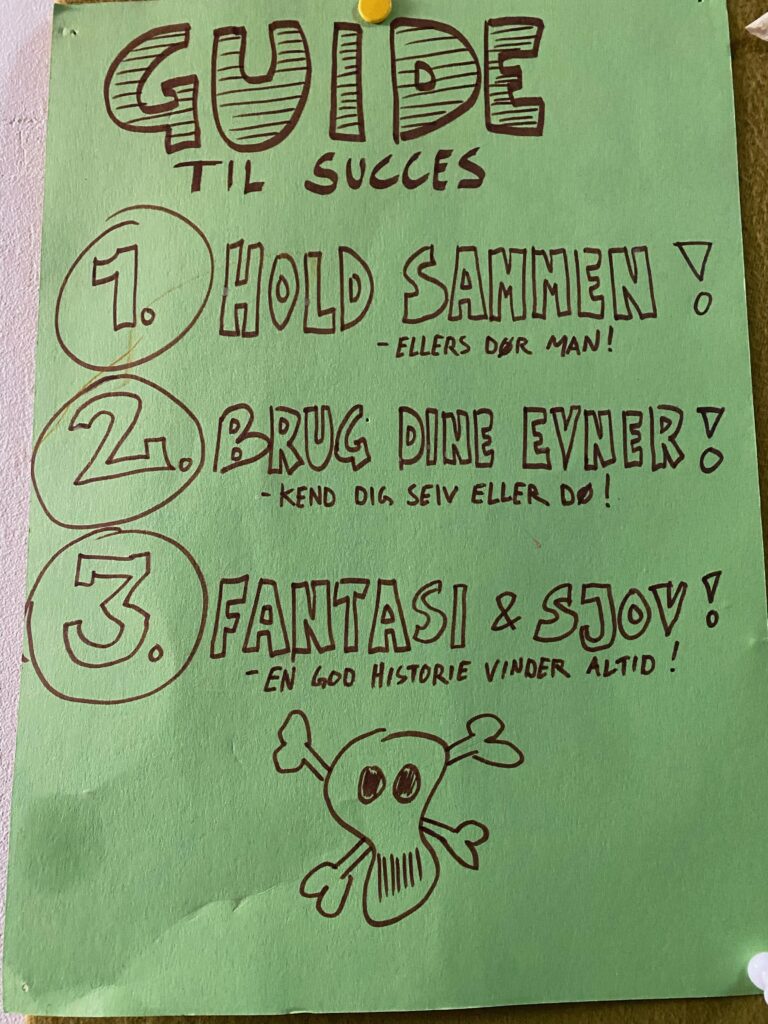 GUIDE
TIL SUCCES
1. HOLD SAMMEN!
- ELLERS DØR MAN!
2. BRUG DINE EVNER!
- KEND DIG SELV ELLER DØ!
3. FANTASI & SJOV!
- EN GOD HISTORIE VINDER ALTID!